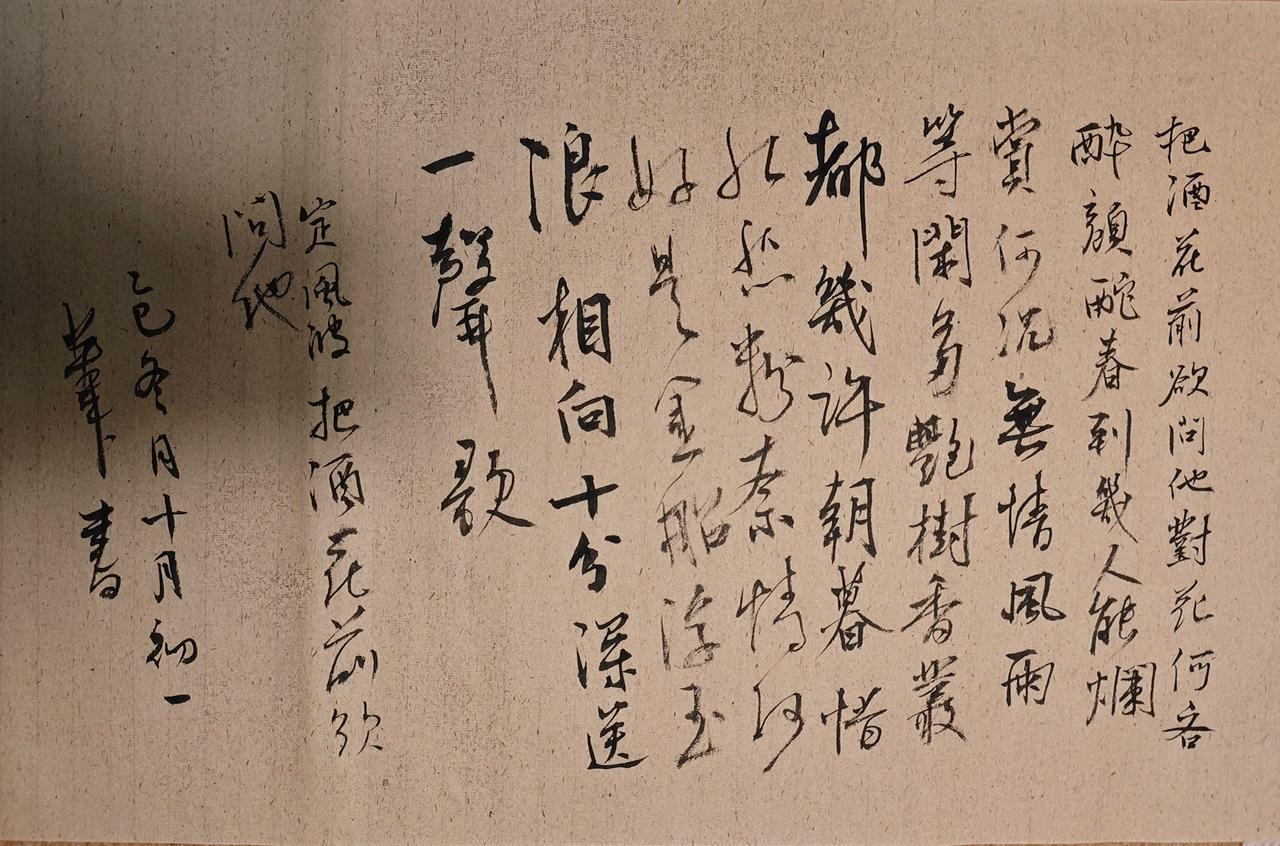 把酒花前欲問他對花何吝
醉顏酡春到幾人能爛
賞何況無情風雨
等閑多艷樹香叢
都幾許朝暮惜
紅愁粉奈情何
好是金船浮玉
浪相向十分深送
一聲歌
定風波 把酒花前欲
問他
乙巳冬月十月初一
書